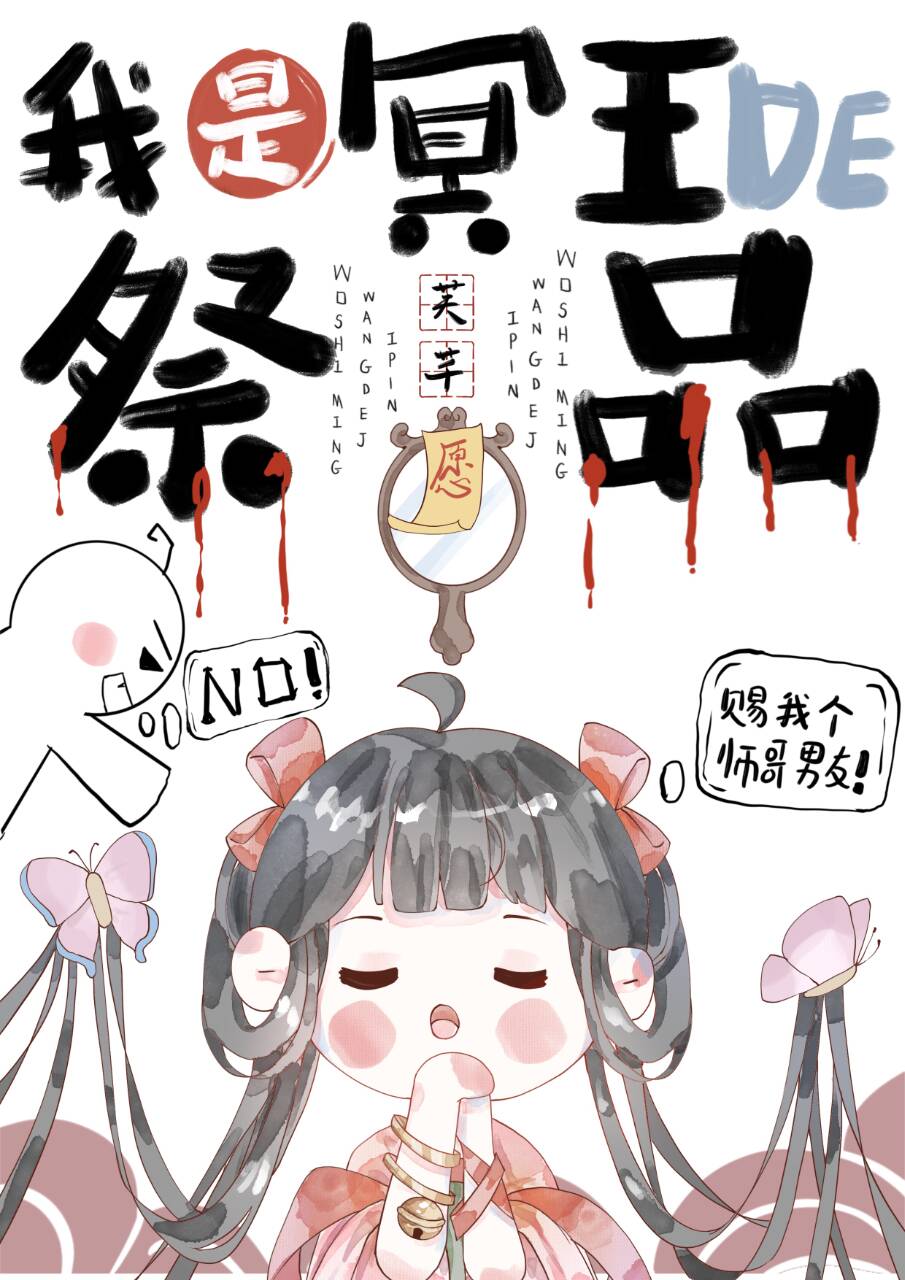 我是冥王DE
祭品
芙芊
WOSHI MING
WANGDEJ
IPIN
IPIN
WANGDEJ
WOSHI MING
愿
NO!
赐我个
师哥男友!